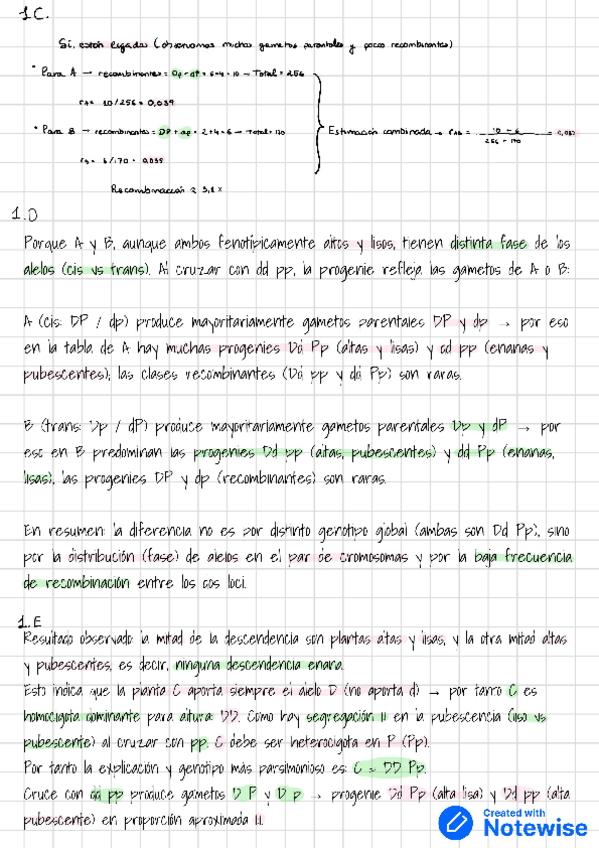 1C.
Si, están ligados (observamos muchos gametos parentales y pocos recombinantes)
• Para A → recombinantes = Dp + dP = 6+4 = 10 → Total = 256
rA = 10/256 = 0,039
• Para B → recombinantes = DP + dp = 2+4 = 6 → Total = 170
rB = 6/170 = 0,035
Estimación combinada → rAB =
256 + 170
Recombinación ≈
1.D
Porque A y B, aunque ambos fenotípicamente altos y lisos, tienen distinta fase de los
alelos (cis vs trans). Al cruzar con dd pp, la progenie refleja las gametos de A o B:
A (cis: DP / dp) produce mayoritariamente gametos parentales DP y dp → por eso
en la tabla de A hay muchas progenies Dd Pp (altas y lisas) y dd pp (enanas y
pubescentes), las clases recombinantes (Dd pp y dd Pp) son raras.
B (trans: Dp / dP) produce mayoritariamente gametos parentales Dp y dP → por
eso en B predominan las progenies Dd pp (altas, pubescentes) y dd Pp (enanas,
lisas), las progenies DP y dp (recombinantes) son raras.
En resumen: la diferencia no es por distinto genotipo global (ambas son Dd Pp), sino
por la distribución (fase) de alelos en el par de cromosomas y por la baja frecuencia
de recombinación entre los dos loci.
1.E
Resultado observado: la mitad de la descendencia son plantas altas y lisas, y la otra mitad altas
y pubescentes, es decir, ninguna descendencia enana.
Esto indica que la planta C aporta siempre el alelo D (no aporta d) → por tanto C es
homocigota dominante para altura: DD. Como hay segregación 1:1 en la pubescencia (liso vs
pubescente) al cruzar con pp, C debe ser heterocigota en P (Pp).
Por tanto la explicación y genotipo más parsimonioso es: C = DD Pp.
Cruce con dd pp produce gametos D P y D p → progenie Dd Pp (alta lisa) y Dd pp (alta
pubescente) en proporción aproximada 1:1.
Created with
Notewise